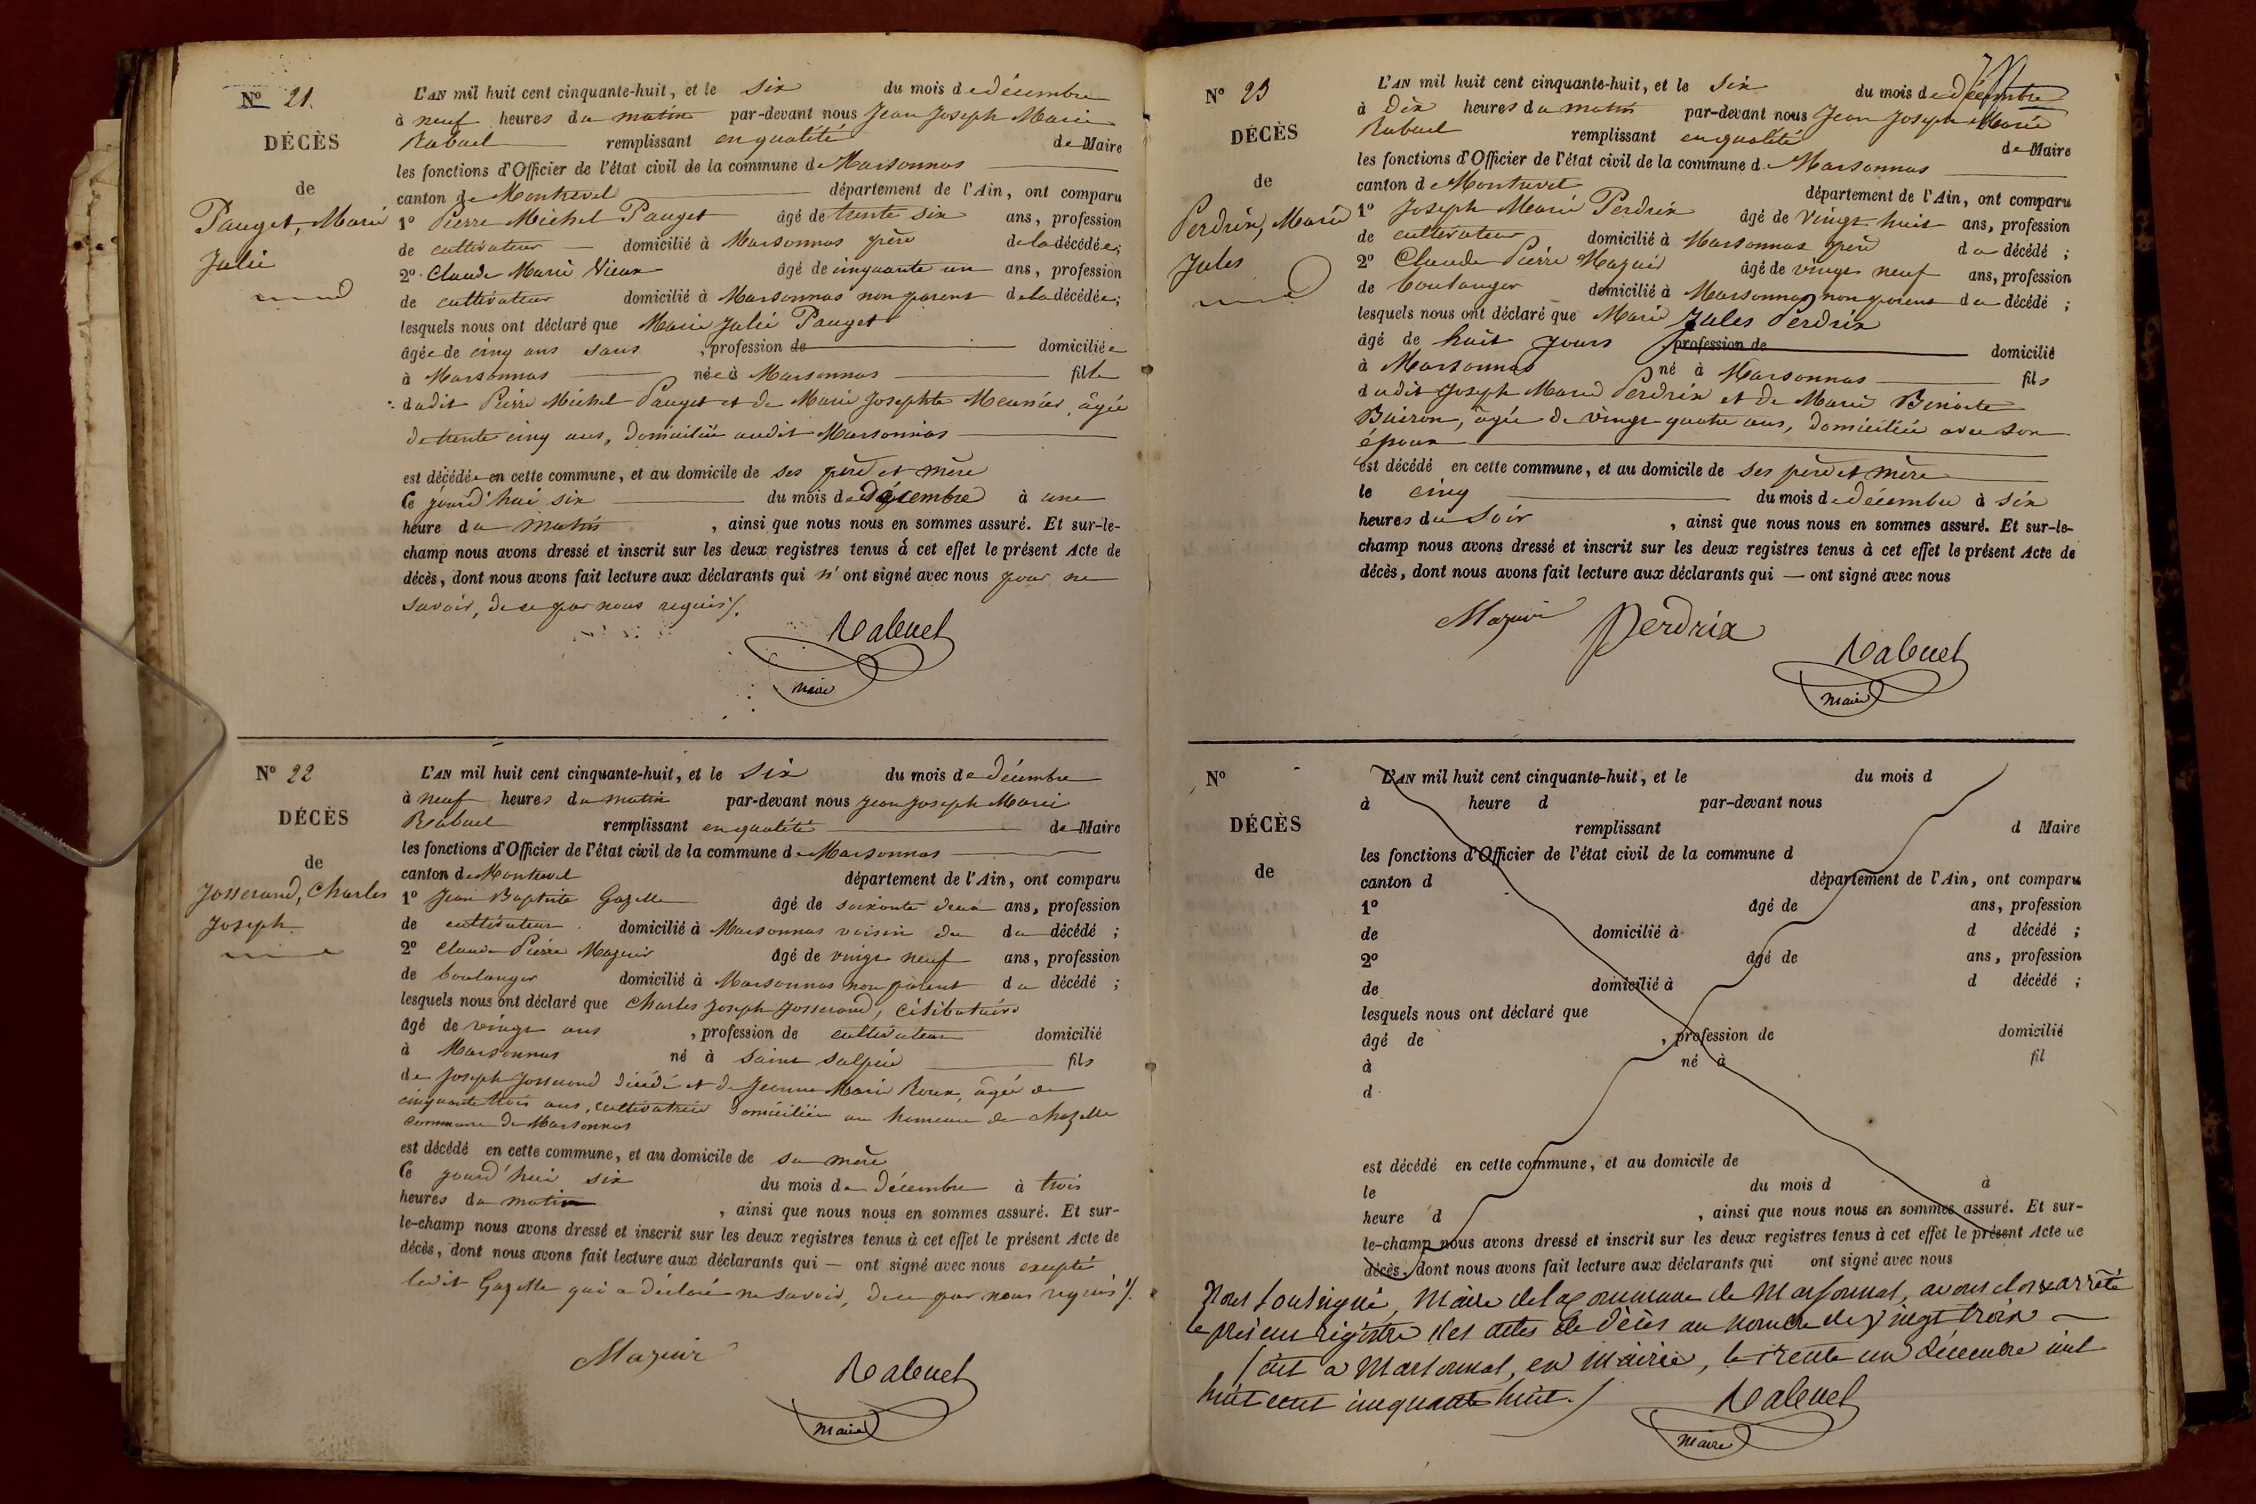 Nº 21.
DÉCÈS
de
Pauget, Marie
Julie
L'AN mil huit cent cinquante-huit, et le six du mois de décembre
à neuf heures du matin par-devant nous Jean Joseph Marie
Rabuel remplissant en qualité de Maire
les fonctions d'Officier de l'état civil de la commune de Marsonnas
canton de Montrevel département de l'Ain, ont comparu
1º Pierre Michel Pauget âgé de trente six ans, profession
de cultivateur domicilié à Marsonnas père de la décédée;
2º Claude Marie Vieux âgé de cinquante un ans, profession
de cultivateur domicilié à Marsonnas non parent de la décédée;
lesquels nous ont déclaré que Marie Julie Pauget
âgée de cinq ans sans, profession de domiciliée
à Marsonnas née à Marsonnas fille
dudit Pierre Michel Pauget et de Marie Josephte Meunier, âgée
de trente cinq ans, domiciliée audit Marsonnas
est décédée en cette commune, et au domicile de ses père et mère
Ce jourd'hui six du mois de décembre à une
heure du matin, ainsi que nous nous en sommes assuré. Et sur-le-
champ nous avons dressé et inscrit sur les deux registres tenus à cet effet le présent Acte de
décès, dont nous avons fait lecture aux déclarants qui n'ont signé avec nous pour ne
savoir, de ce par nous requis /.
Rabuel
Maire
Nº 22
DÉCÈS
de
Josserand, Charles
Joseph
L'AN mil huit cent cinquante-huit, et le six du mois de décembre
à neuf heures du matin par-devant nous Jean Joseph Marie
Rabuel remplissant en qualité de Maire
les fonctions d'Officier de l'état civil de la commune de Marsonnas
canton de Montrevel département de l'Ain, ont comparu
1º Jean Baptiste Gazelle âgé de soixante deux ans, profession
de cultivateur domicilié à Marsonnas voisin du du décédé;
2º Claude Pierre Mazuir âgé de vingt neuf ans, profession
de boulanger domicilié à Marsonnas non parent du décédé;
lesquels nous ont déclaré que Charles Joseph Josserand, célibataire
âgé de vingt ans, profession de cultivateur domicilié
à Marsonnas né à Saint Sulpice fils
de Joseph Josserand décédé et de Jeanne Marie Roux, âgée de
cinquante trois ans, cultivatrice domiciliée au hameau de Chazelle
commune de Marsonnas
est décédé en cette commune, et au domicile de sa mère
Ce jourd'hui six du mois de décembre à trois
heures du matin, ainsi que nous nous en sommes assuré. Et sur-
le-champ nous avons dressé et inscrit sur les deux registres tenus à cet effet le présent Acte de
décès, dont nous avons fait lecture aux déclarants qui — ont signé avec nous excepté
ledit Gazelle qui a déclaré ne savoir, de ce par nous requis /.
Mazuir
Rabuel
Maire
Nº 23
DÉCÈS
de
Perdrix, Marie
Jules
L'AN mil huit cent cinquante-huit, et le six du mois de décembre
à Dix heures du matin par-devant nous Jean Joseph Marie
Rabuel remplissant en qualité de Maire
les fonctions d'Officier de l'état civil de la commune de Marsonnas
canton de Montrevel département de l'Ain, ont comparu
1º Joseph Marie Perdrix âgé de vingt huit ans, profession
de cultivateur domicilié à Marsonnas père du décédé;
2º Claude Pierre Mazuir âgé de vingt neuf ans, profession
de boulanger domicilié à Marsonnas non parent du décédé;
lesquels nous ont déclaré que Marie Jules Perdrix
âgé de huit jours profession de domicilié
à Marsonnas né à Marsonnas fils
dudit Joseph Marie Perdrix et de Marie Benoite
Buiron, âgée de vingt quatre ans, domiciliée avec son
époux
est décédé en cette commune, et au domicile de ses père et mère
le cinq du mois de décembre à six
heures du soir, ainsi que nous nous en sommes assuré. Et sur-le-
champ nous avons dressé et inscrit sur les deux registres tenus à cet effet le présent Acte de
décès, dont nous avons fait lecture aux déclarants qui — ont signé avec nous
Mazuir
Perdrix
Rabuel
Maire
Nº
DÉCÈS
de
L'AN mil huit cent cinquante-huit, et le du mois d
à heure d par-devant nous
remplissant d Maire
les fonctions d'Officier de l'état civil de la commune d
canton d département de l'Ain, ont comparu
1º âgé de ans, profession
de domicilié à d décédé;
2º âgé de ans, profession
de domicilié à d décédé;
lesquels nous ont déclaré que
âgé de, profession de domicilié
à né à fil
d
est décédé en cette commune, et au domicile de
le du mois d à
heure d, ainsi que nous nous en sommes assuré. Et sur-
le-champ nous avons dressé et inscrit sur les deux registres tenus à cet effet le présent Acte de
décès, dont nous avons fait lecture aux déclarants qui ont signé avec nous
Nous soussigné, Maire de la commune de Marsonnas, avons clos et arrêté
le présent régistre des actes de décès au nombre de vingt trois
fait à Marsonnas, en Mairie, le trente un décembre mil
huit cent cinquante huit./
Rabuel
Maire